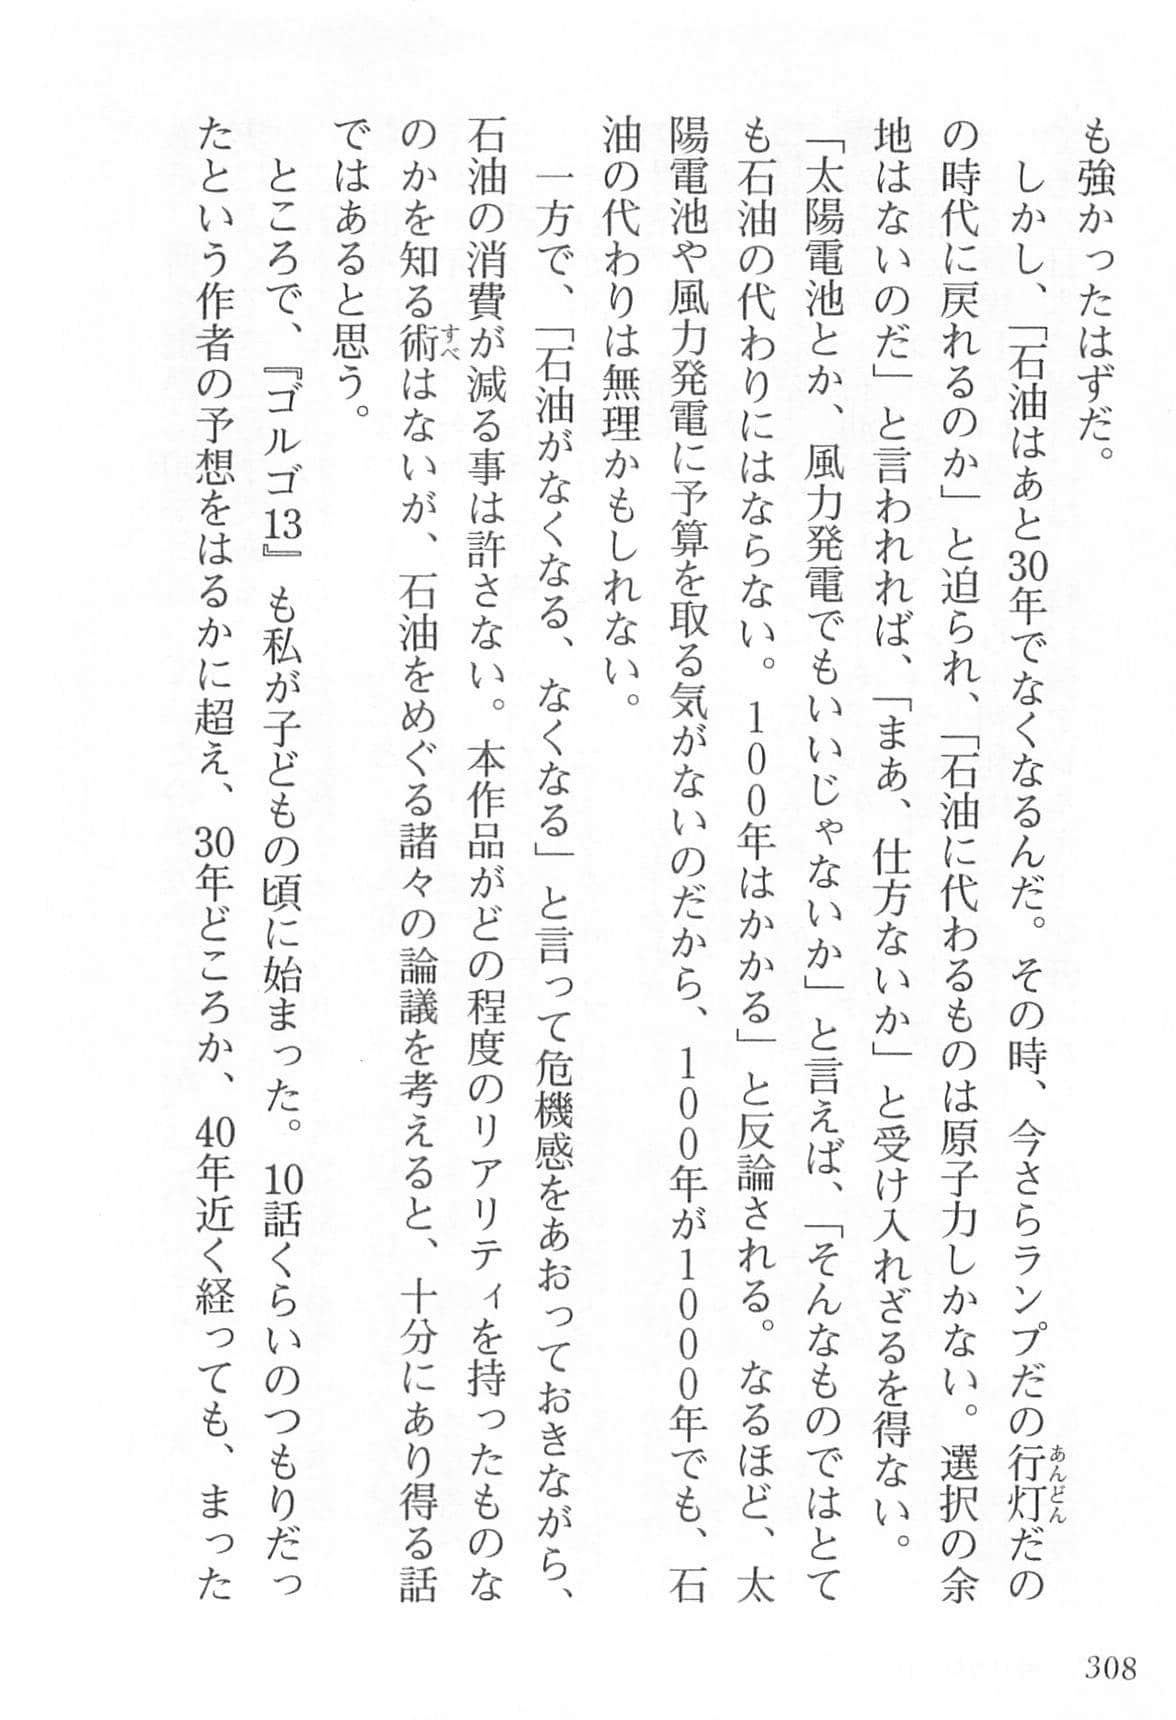 も強かったはずだ。
しかし、「石油はあと30年でなくなるんだ。その時、今さらランプだの行灯だの
あんどん
の時代に戻れるのか」と迫られ、「石油に代わるものは原子力しかない。選択の余
地はないのだ」と言われれば、「まあ、仕方ないか」と受け入れざるを得ない。
「太陽電池とか、風力発電でもいいじゃないか」と言えば、「そんなものではとて
も石油の代わりにはならない。100年はかかる」と反論される。なるほど、太
陽電池や風力発電に予算を取る気がないのだから、100年が1000年でも、石
油の代わりは無理かもしれない。
一方で、「石油がなくなる、なくなる」と言って危機感をあおっておきながら、
石油の消費が減る事は許さない。本作品がどの程度のリアリティを持ったものな
のかを知る術はないが、石油をめぐる諸々の論議を考えると、十分にあり得る話
すべ
ではあると思う。
ところで、『ゴルゴ13』も私が子どもの頃に始まった。10話くらいのつもりだっ
たという作者の予想をはるかに超え、30年どころか、40年近く経っても、まった
308